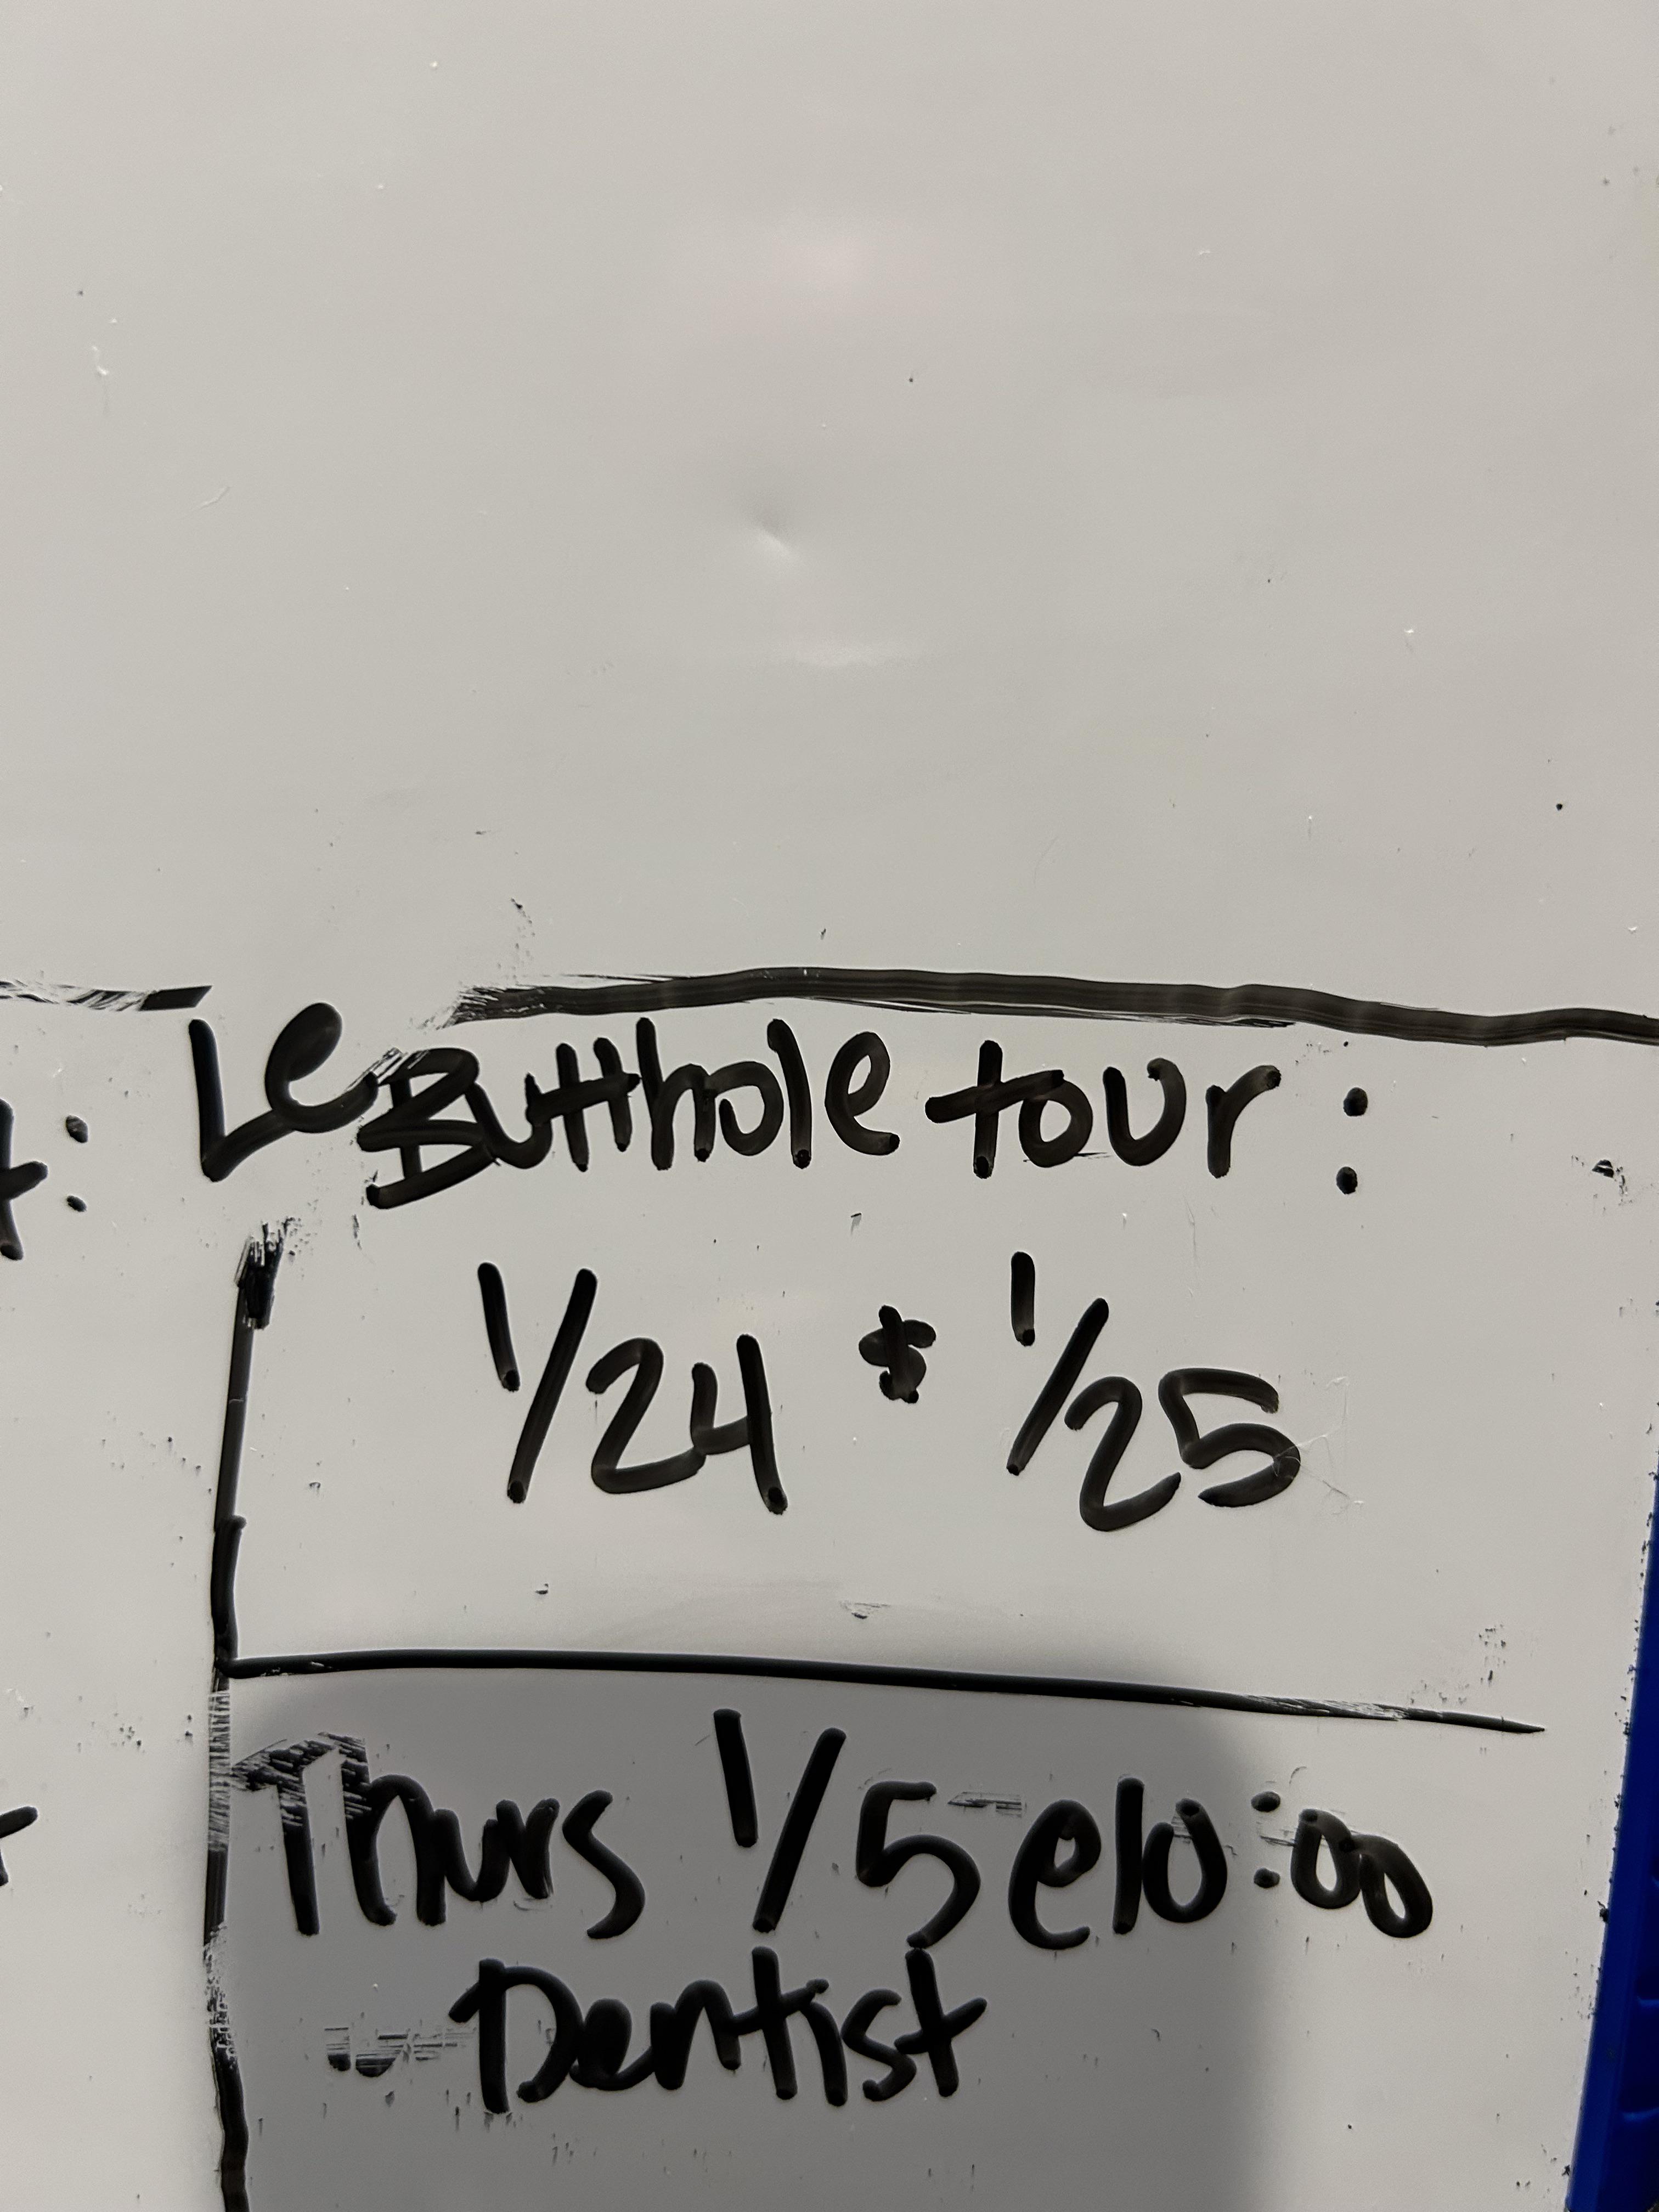 Le Butthole tour:
1/24 & 1/25
Thurs 1/5 @ 10:00
Dentist